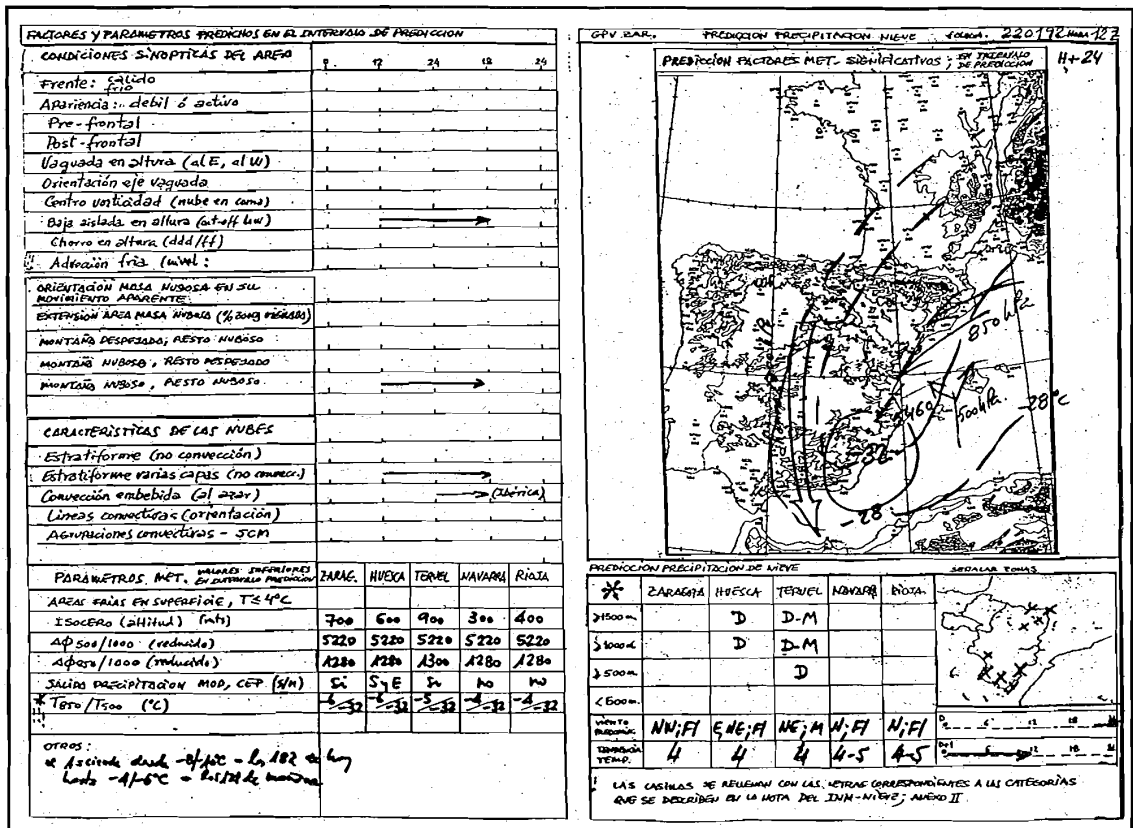 FACTORES Y PARAMETROS PREDICHOS EN EL INTERVALO DE PREDICCION
CONDICIONES SINOPTICAS DEL AREA
12 24 12 24
Frente: cálido
frío
Apariencia: debil ó activo
Pre-frontal
Post-frontal
Vaguada en altura (al E, al W)
Orientación eje vaguada
Centro vorticidad (nube en coma)
Baja aislada en altura (cut-off low)
Chorro en altura (ddd/ff)
Advección fría (nivel:
ORIENTACION MASA NUBOSA EN SU
MOVIMIENTO APARENTE
EXTENSION AREA MASA NUBOSA (% zona
MONTAÑA DESPEJADO; RESTO NUBOSO
MONTAÑA NUBOSO, RESTO DESPEJADO
MONTAÑA NUBOSO, RESTO NUBOSO
CARACTERISTICAS DE LAS NUBES
Estratiforme (no convección)
Estratiforme varias capas (no convecc.)
Convección embebida (al azar) (Ibérica)
Lineas convectivas (orientación)
Agrupaciones convectivas - SCM
PARAMETROS MET. VALORES INFERIORES EN INTERVALO PREDICCION ZARAG. HUESCA TERUEL NAVARRA RIOJA
AREAS FRIAS EN SUPERFICIE, T≤4ºC
ISOCERO (altitud) (mts) 700 600 900 300 400
ΔΦ 500/1000 (reducido) 5220 5220 5220 5220 5220
ΔΦ 850/1000 (reducido) 1280 1280 1300 1280 1280
SALIDA PRECIPITACION MOD, CEP (S/N) Si S y E Si no no
* T850/T500 (ºC) -6/-32 -6/-32 -5/-32 -4/-32 -4/-32
OTROS:
* Asciende desde
hasta -4/-6ºC
GPV ZAR. PREDICCION PRECIPITACION NIEVE FECHA. 220192 HORA 12Z
PREDICCIÓN FACTORES MET. SIGNIFICATIVOS; EN INTERVALO
DE PREDICCION
H+24
850 hPa
5460
500 hPa
-28ºC
-32
-28
PREDICCIÓN PRECIPITACION DE NIEVE
SEÑALAR ZONAS
* ZARAGOZA HUESCA TERUEL NAVARRA RIOJA
≥1500m D D-M
≥1000m D D-M
≥500m D
<500m
VIENTO NW;Fl E,NE;Fl NE;M N;Fl N;Fl
6 12 18
TENDENCIA TEMP. 4 4 4 4-5 4-5
6 12 18
LAS CASILLAS SE RELLENAN CON LAS LETRAS CORRESPONDIENTES A LAS CATEGORIAS
QUE SE DESCRIBEN EN LA NOTA DEL INM-NIEVE; ANEXO II